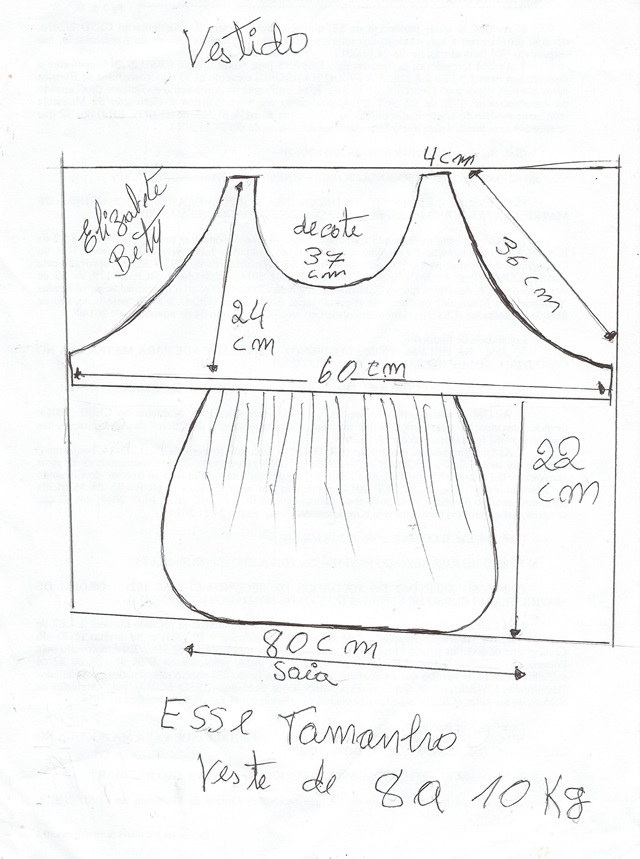 Vestido
4cm
Elizabete
Bety
decote
37
cm
36 cm
24
cm
60cm
22
cm
80cm
Saia
Esse Tamanho
Veste de 8 a 10 Kg